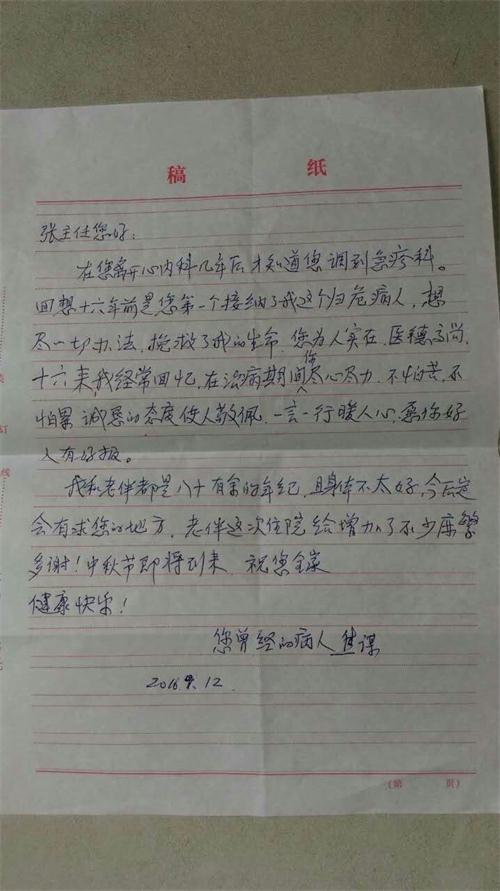 稿 纸
张主任您好:
在您离开心内科几年后才知道您调到急疹科。
回想十六年前是您第一个接纳了我这个归危病人,想
尽一切办法,挽救了我的生命,您为人实在,医德高尚,
十六来,我经常回忆,在治病期间您尽心尽力,不怕苦,不
怕累,诚恳的态度使人敬佩,一言一行暖人心,愿你好
人有好报。
我和老伴都是八十有余的年纪,且身体不太好,今后定
会有求您的地方,老伴这次住院给增加了不少麻繁
多谢!中秋节即将到来,祝您全家
健康快乐!
您曾经的病人 谋
2016.9.12.
(第 页)